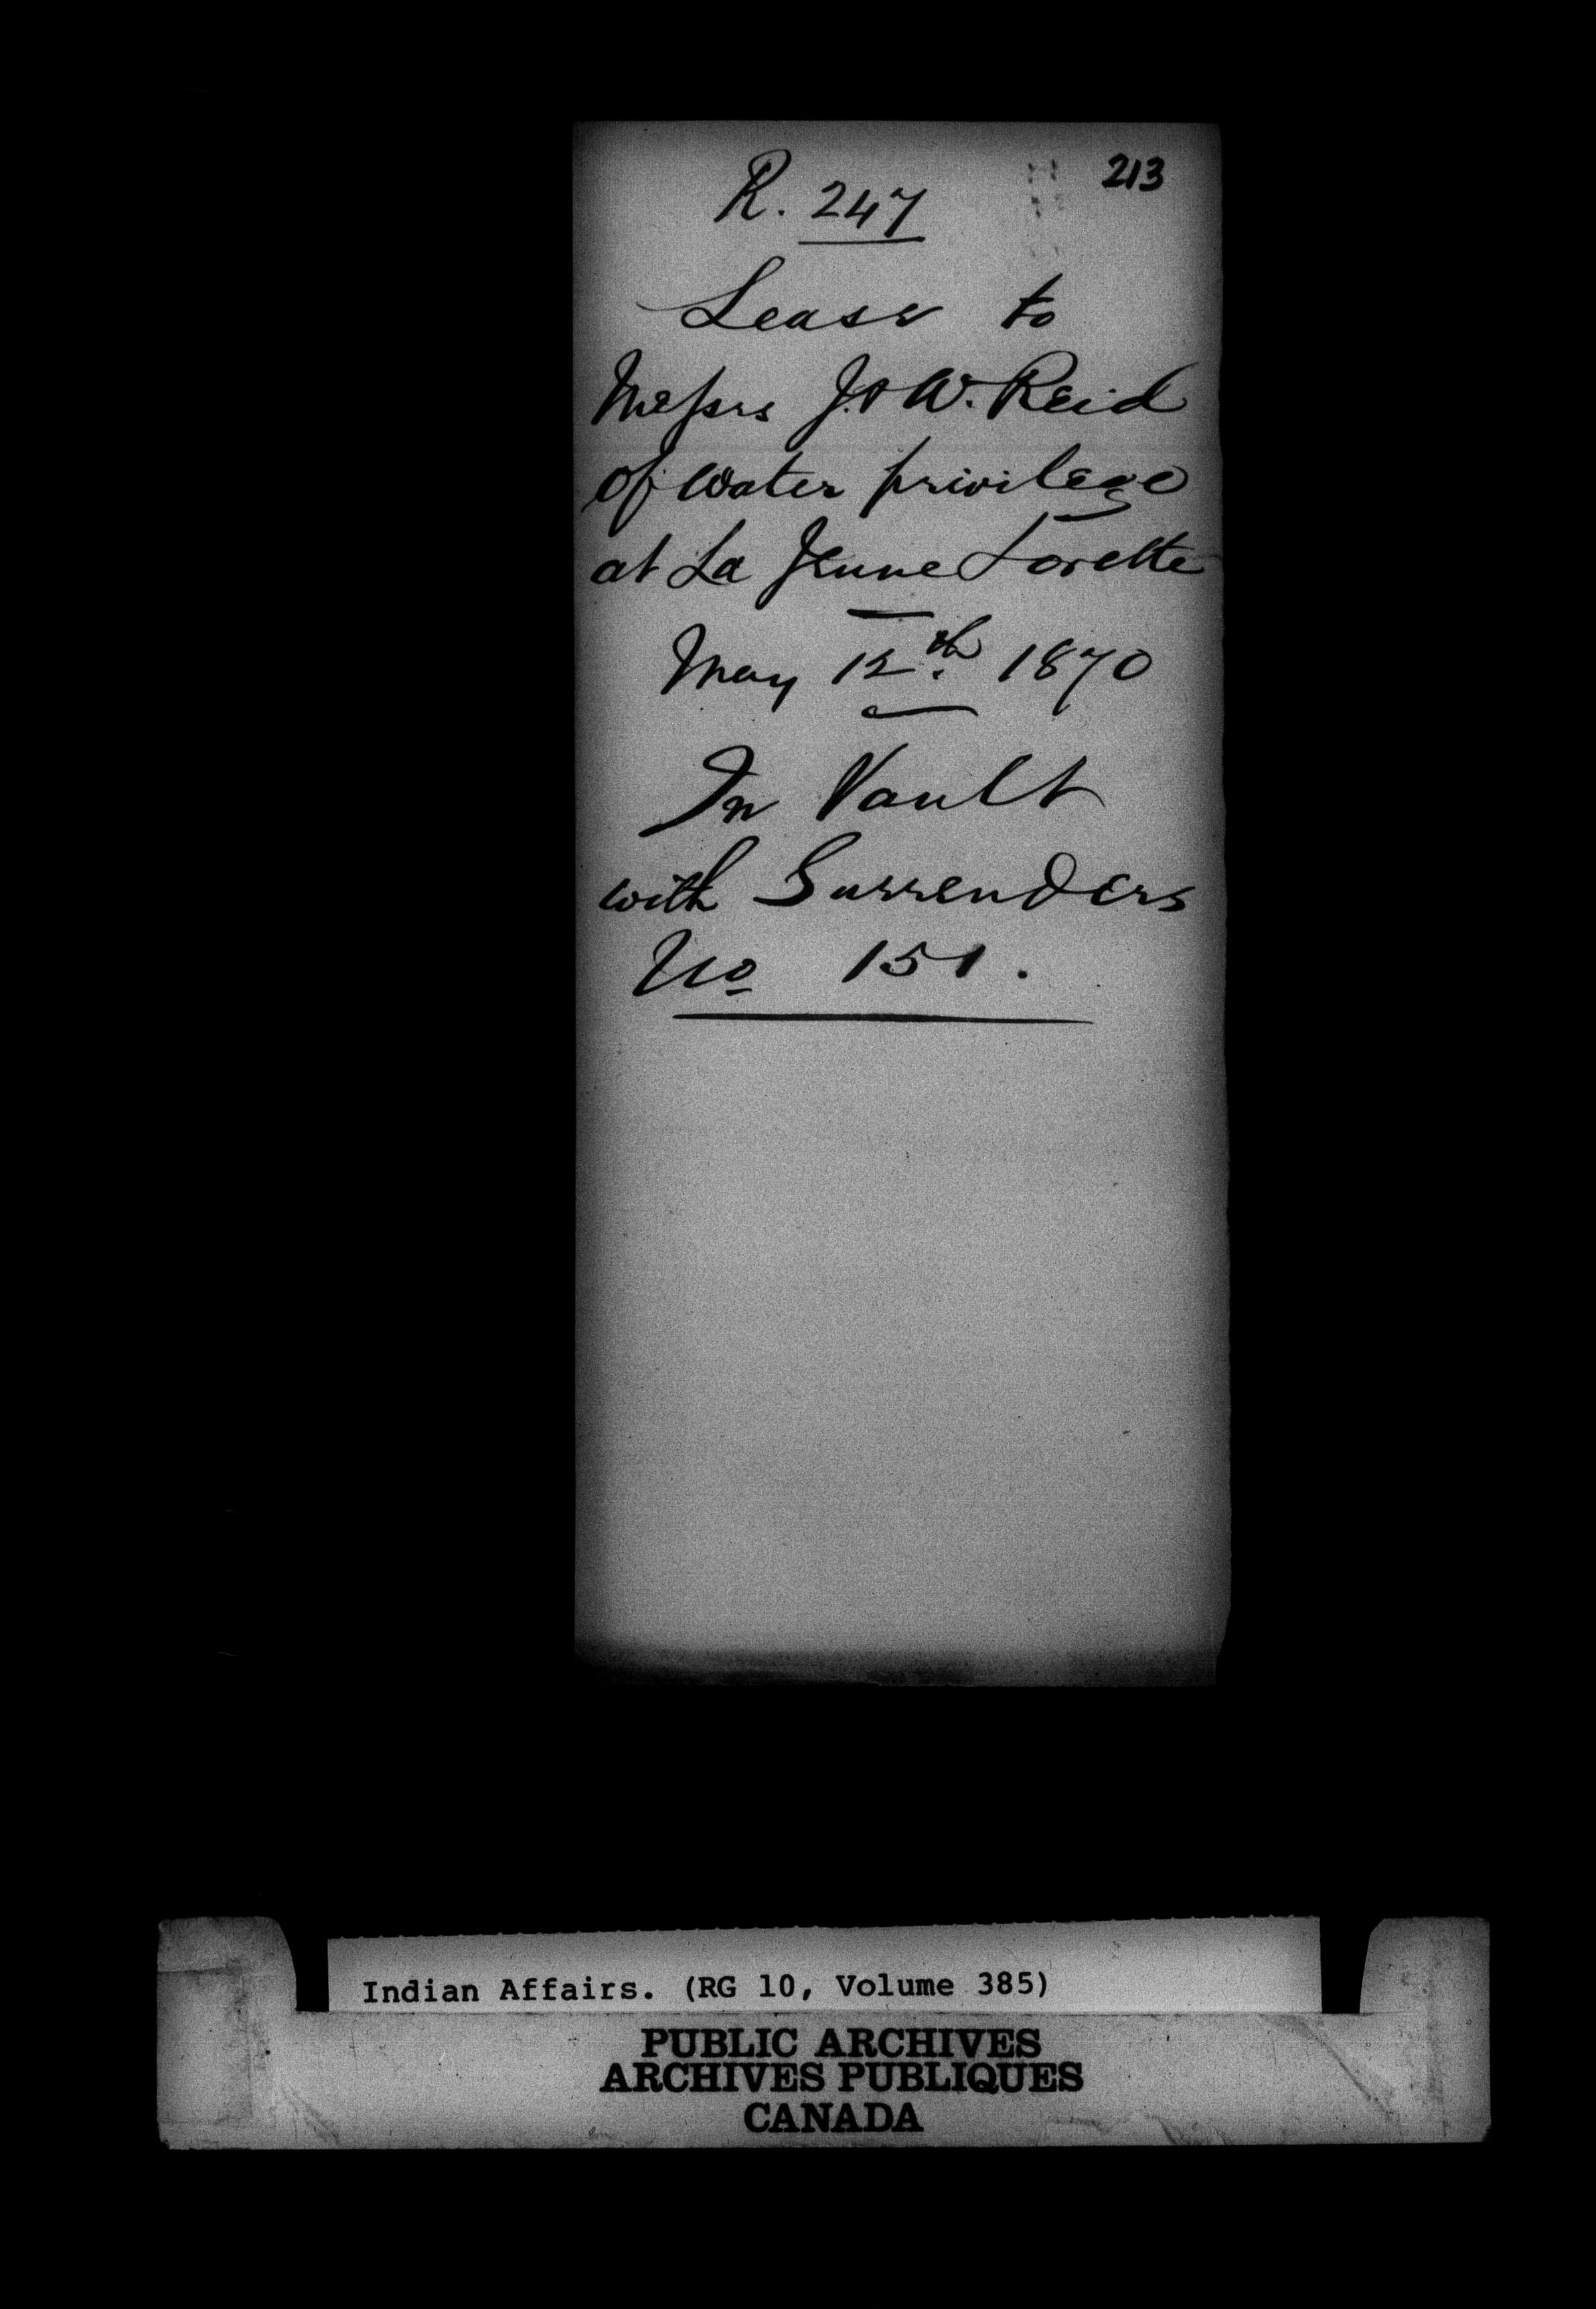 213
R. 247
Lease to
Messrs J. & W. Reid
of water privilege
at La Jeune Lorette
May 12th. 1870
In Vault
with Surrenders
No 151.
Indian Affairs. (RG 10, Volume 385)
PUBLIC ARCHIVES
ARCHIVES PUBLIQUES
CANADA